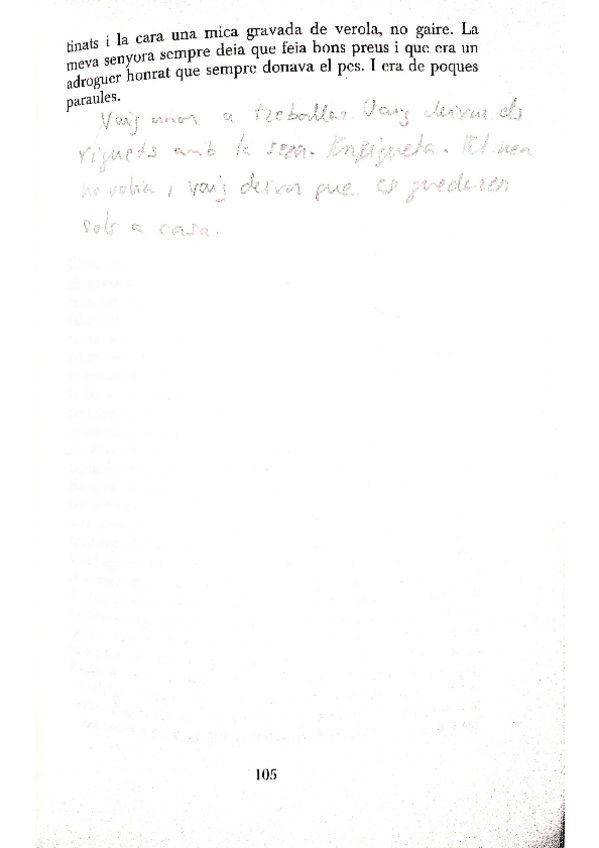 tinats i la cara una mica gravada de verola, no gaire. La
meva senyora sempre deia que feia bons preus i que era un
adroguer honrat que sempre donava el pes. I era de poques
paraules.
Vaig anar a treballar. Vaig deixar els
amb la sra. Enriqueta. El nen
no volia i vaig deixar que es quedaren
sols a casa.
105